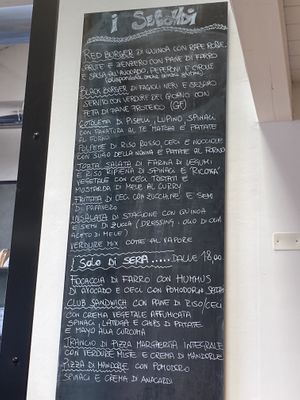 i Secondi
RED BURGER DI QUINOA CON RAPE ROSSE,
E ZENZERO CON PANE DI FARRO
E SALSA ALL'AVOCADO, PEPERONI E CIPOLLE
BLACK BURGER DI FAGIOLI NERI E SEDANO
SERVITO CON VERDURE DEL GIORNO CON
FETA DI PANE PROTEICO (GF)
COTOLETTA DI PISELLI, LUPINO, SPINACI
CON PANATURA AL TE MATCHA E PATATE
AL FORNO
POLPETTE DI RISO ROSSO, CECI E NOCCIOLE
CON SUGO DELLA NONNA E PATATE AL FORNO
TORTA SALATA DI FARINA DI LEGUMI
E RISO RIPIENA DI SPINACI E RICOTTA
VEGETALE CON CECI TOSTATI E
MOSTARDA DI MELE AL CURRY
FRITTATA DI CECI CON ZUCCHINE E SEMI
DI PAPAVERO
INSALATA DI STAGIONE CON QUINOA
E SEMI DI ZUCCA (DRESSING: OLIO DI OLIVA
ACETO DI MELE)
VERDURE MIX COTTE AL VAPORE
SOLO DI SERA..... DALLE 18,00
FOCACCIA DI FARRO CON HUMMUS
DI AVOCADO E CECI CON POMODORI SECCHI
CLUB SANDWICH CON PANE DI RISO/CECI
CON CREMA VEGETALE AFFUMICATA
SPINACI, LATTUGA E CHIPS DI PATATE
E MAYO ALLA CURCUMA
TRANCIO DI PIZZA MARGHERITA INTEGRALE
CON VERDURE MISTE E CREMA DI MANDORLE
PIZZA DI MANDORLE CON POMODORO
SPINACI E CREMA DI ANACARDI